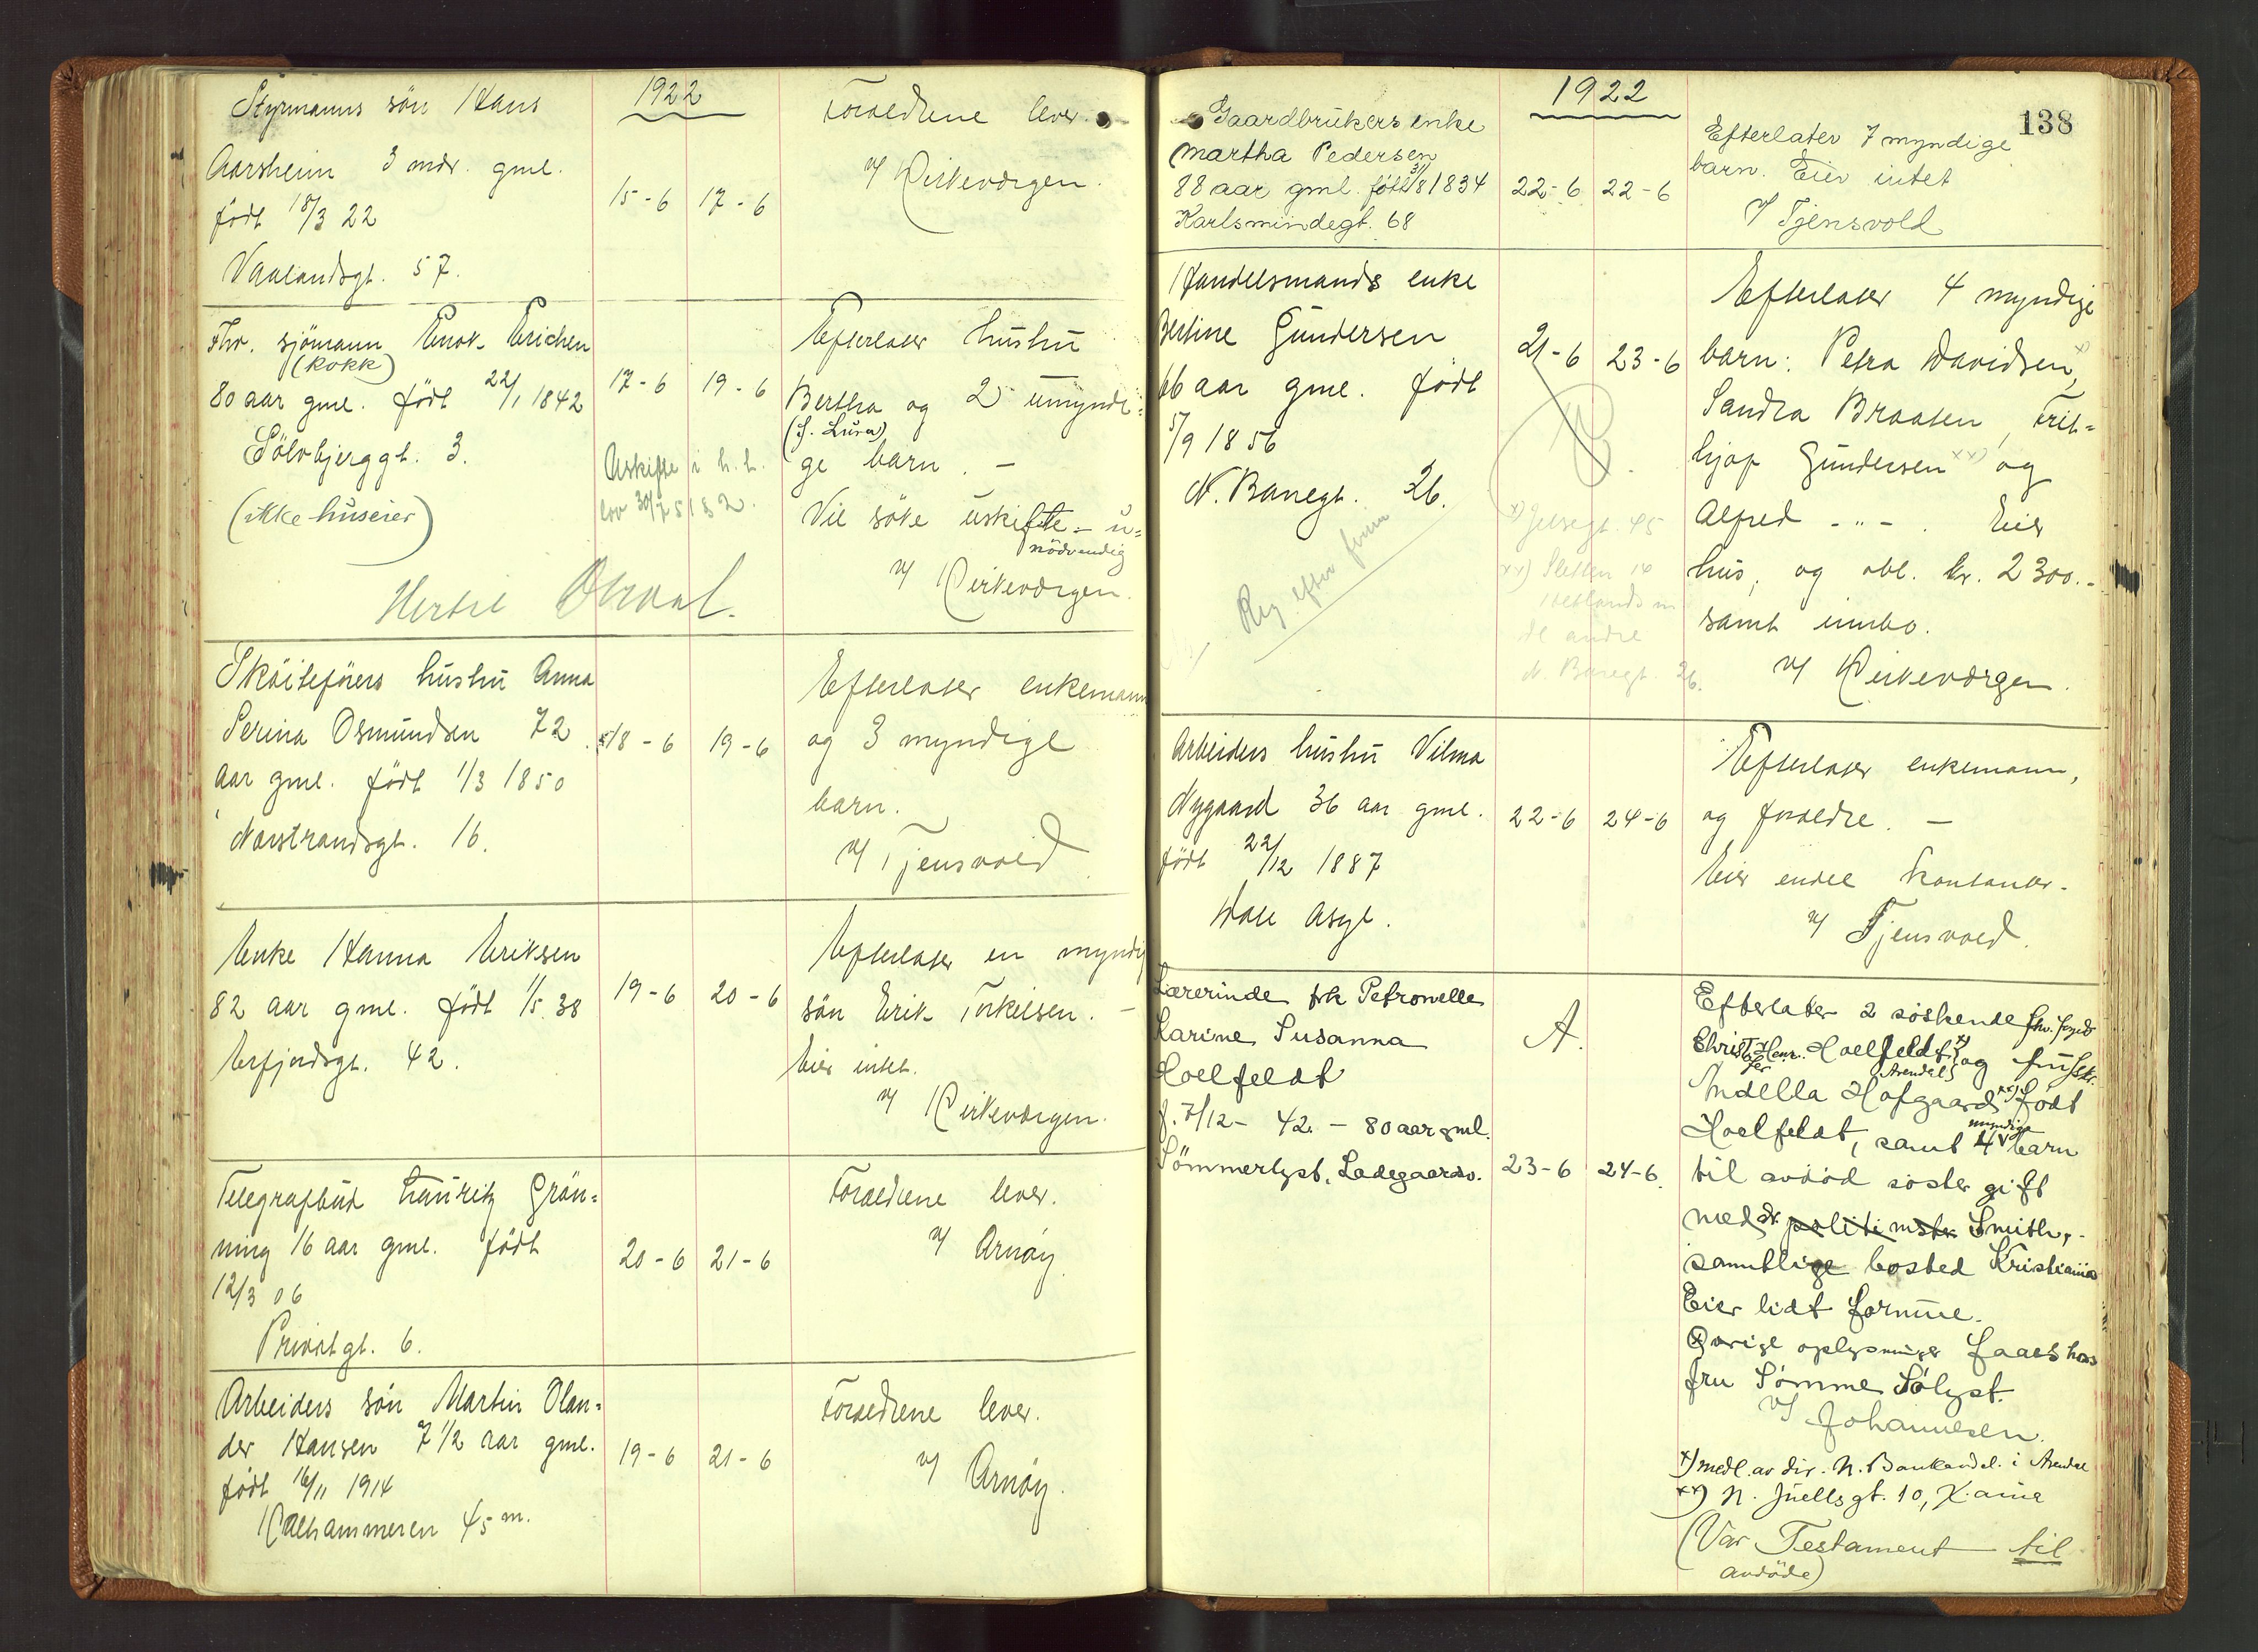 1922
Styrmanns sön Hans
Aarsheim 3 mdr. gml.
födt 18/3 22
Vaalandsgt. 57.
15-6 17-6
Foraeldrene lever.
v/ Kirkeværgen.
Fhv. sjömann Enok Erichsen
(kokk)
80 aar gml. födt 22/1 1842
Sölvbjerggt. 3.
(ikke huseier)
17-6 19-6
Uskifte i h. t.
lov 30/7 51 § 2.
Efterlater hustru
Bertha og 2 umyndi-
(f. Lura)
ge barn. -
Vil söke uskifte - u-
nödvendig
v/ Kirkeværgen.
Skøiteförers hustru Anna
Serina Osmundsen 72
aar gml. födt 1/3 1850
Norstrandsgt. 16.
18-6 19-6
Efterlater enkemann
og 3 myndige
barn.
v/ Tjensvold
Enke Hanna Eriksen
82 aar gml. födt 1/5. 38
Erfjordsgt. 42.
19-6 20-6
Efterlater en myndig
sön Erik Torkilsen. -
Eier intet.
v/ Kirkeværgen.
Telegrafbud Lauritz Grön-
ning 16 aar gml. födt
12/3 06
Privatgt. 6.
20-6 21-6
Foraeldrene lever.
v/ Arnøy
Arbeiders sön Martin Olan-
der Hansen 7 1/2 aar gml.
födt 16/11 1914
Kalhammeren 45 m.
19-6 21-6
Foraeldrene lever.
v/ Arnøy.
1922
138
Gaardbrukers enke
Martha Pedersen
88 aar gml. født 31/8 1834
Karlsmindegt. 68
22-6 22-6
Efterlater 7 myndige
barn. Eier intet
v/ Tjensvold
Handelsmands enke
Bertine Gundersen
66 aar gml. födt
5/9 1856
N. Banegt. 26.
Reg. efter
21-6 23-6
N. Banegt 26.
Efterlater 4 myndige
barn: Petra Davidsen x),
Sandra Braaten, Frit-
hjof Gundersen xx) og
Alfred -"- . Eier
hus, og obl. kr. 2300.-
samt innbo.
v/ Kirkeværgen.
Arbeiders hustru Vilma
Nygaard 36 aar gml.
födt 22/12 1887
Dale Asyl.
22-6 24-6
Efterlater enkemann,
og foraeldre. -
Eier endel kontanter.
v/ Tjensvold.
Lærerinde frk Petronelle
Karine Susanna
Hoelfeldt
f. 7/12 - 42. - 80 aar gml.
Sömmerlyst, Ladegaardsv.
A.
23-6 24-6.
Efterlater 2 søskende fhv. foged
Christ. Henr. Hoelfeldt x) og fru
Arendal
Indella Hofgaard xx) født
Hoelfeldt, samt 4 myndige barn
til avdød søster gift
med dr. politimster Smith, -
samtlige bosted Kristiania
Eier lidt formue.
Øvrige oplysninger faaes hos
fru Sömme Sólyst.
v/ Johannesen.
x) medl. av dir. N. Bankavdel. i Arendal
xx) N. Juellsgt. 10, X.ania
(Var Testament til
avdöde)